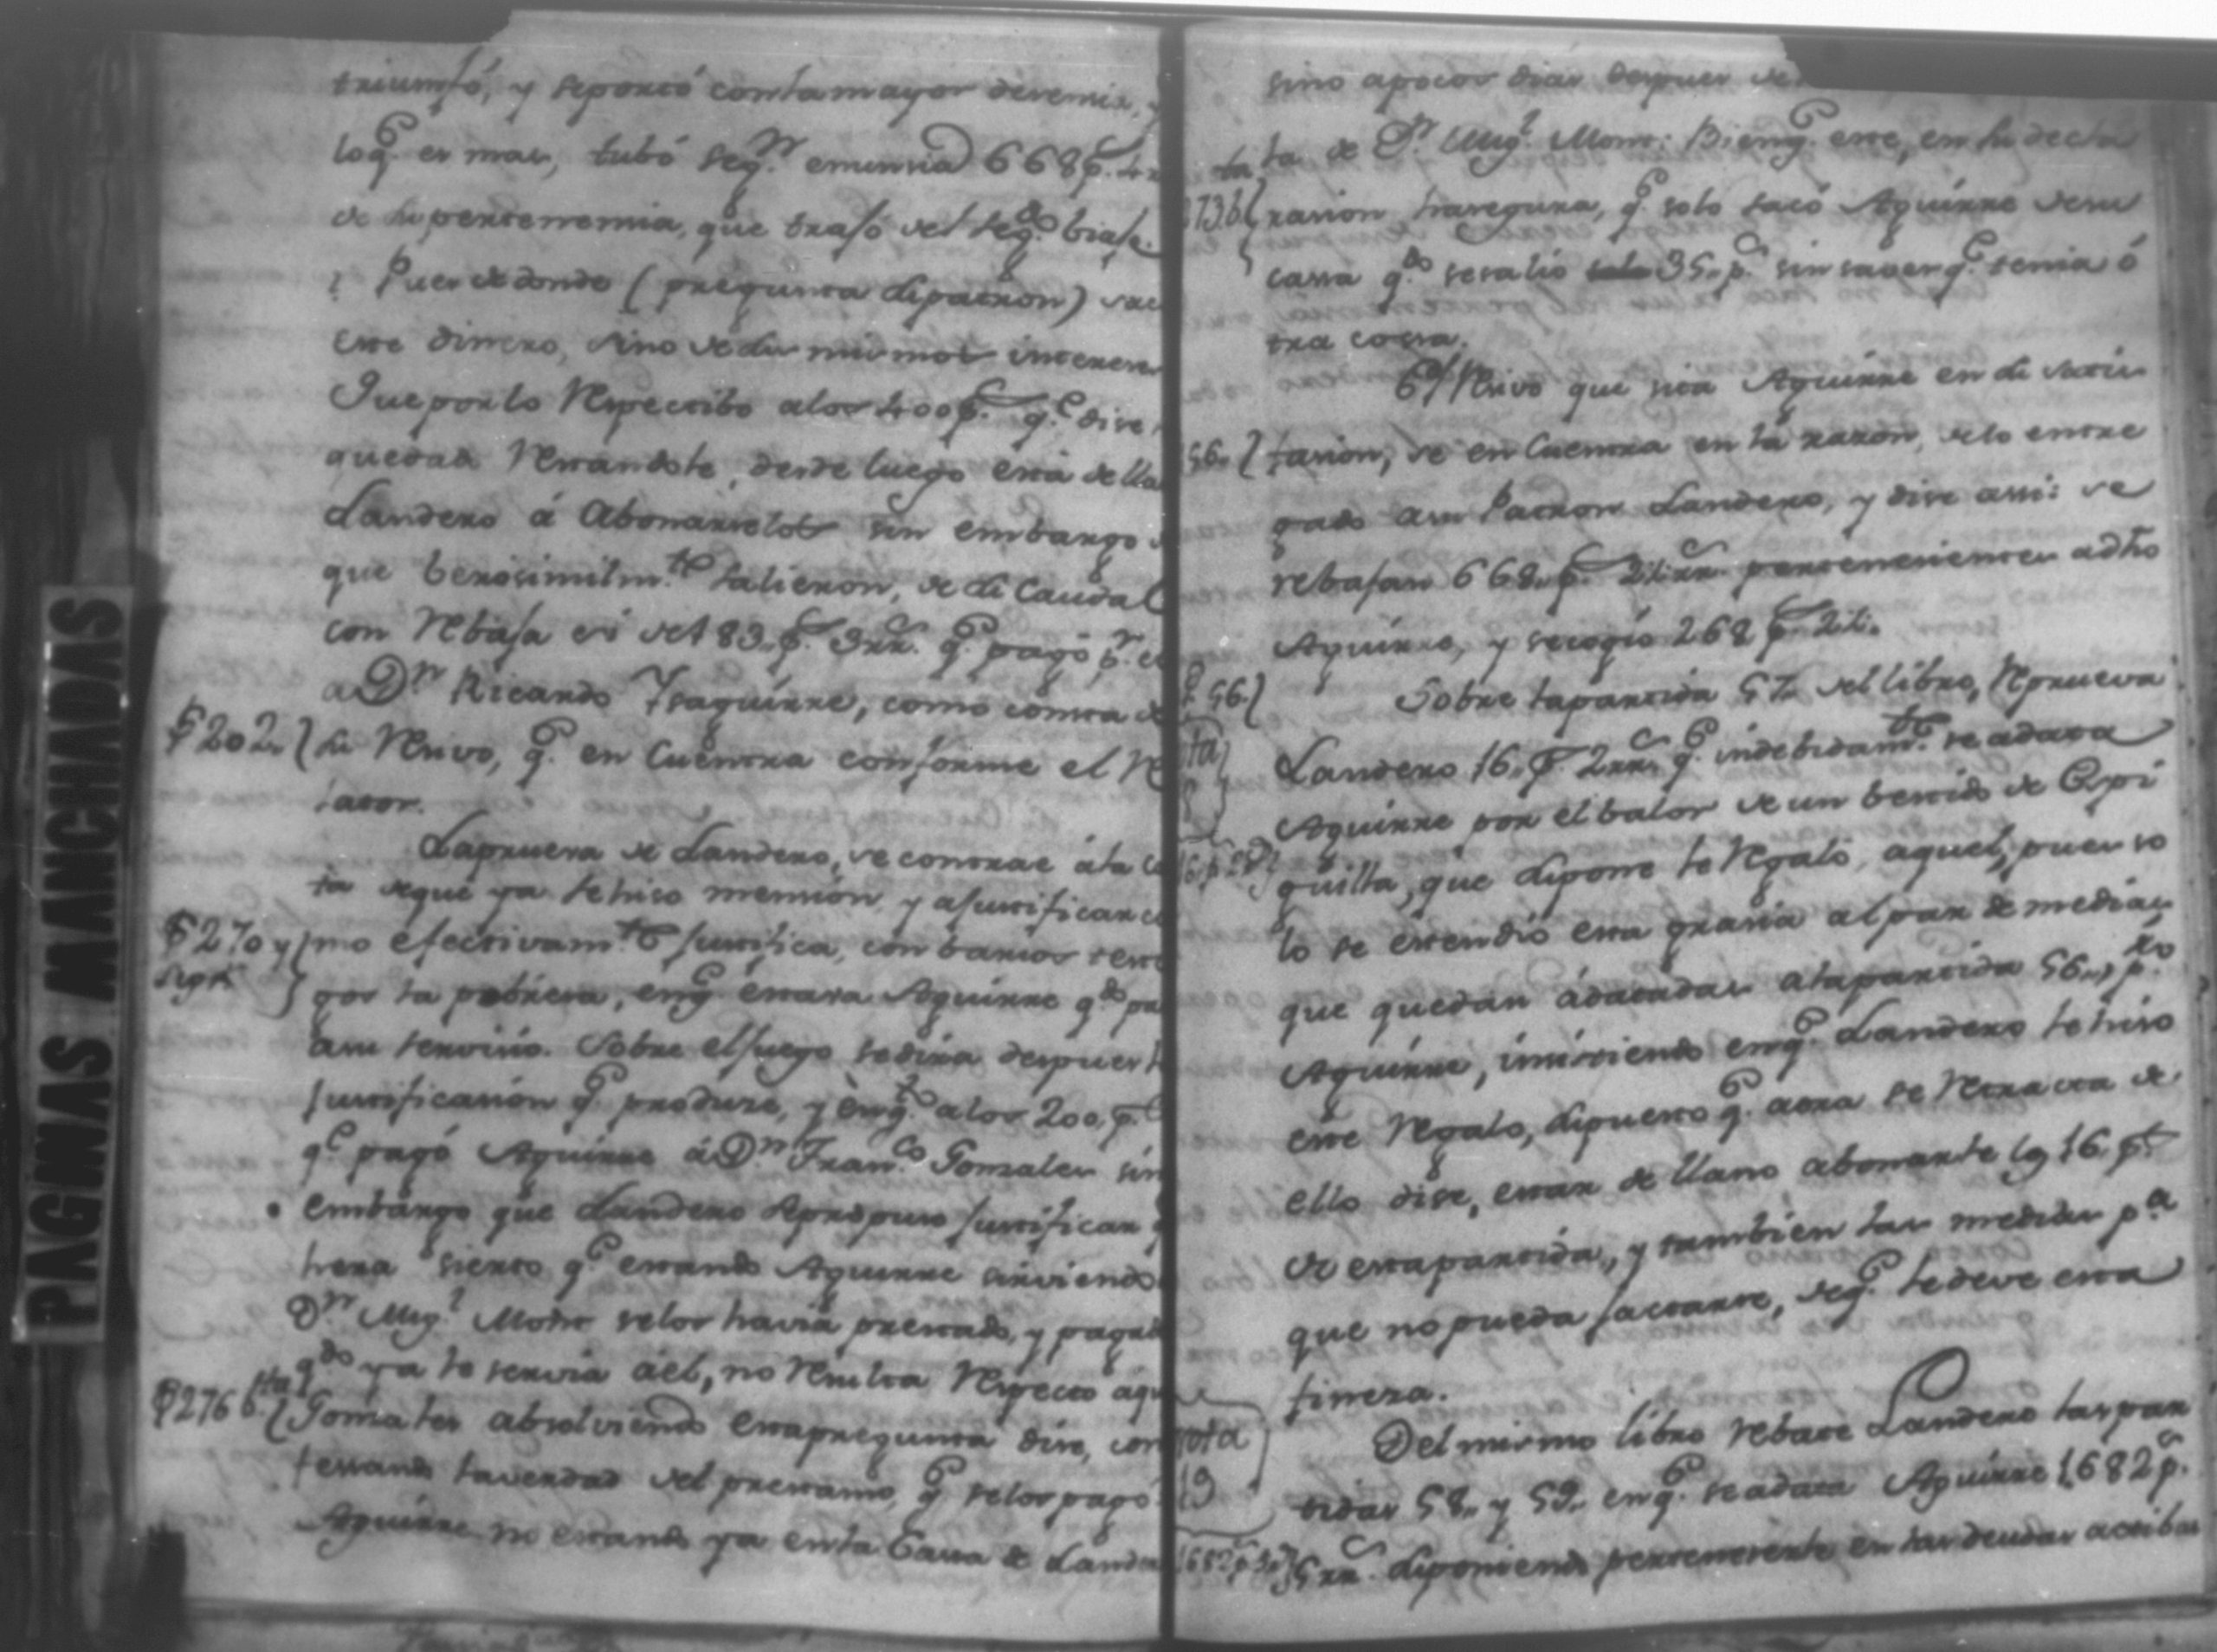 PAGINAS MANCHADAS
triumfó, y reportó contamayor
loq.e es mas, tubó seg.n 668 p.s
de su pertenencia, que trajo del seg.do biaje.
? Pues dedonde (pregunta supatron)
este dinero, sino desus mismos interese
Que porlo Respectibo alos 400 p.s q.e dise,
quedar Restandole, desde luego está de lla
Landero á Abonarselos sin embargo
que berosimilm.te salieron, de su Caudal
con Rebaja si de 183,, p.s 3 rr.s q.e pagó p.r el
a D.n Ricardo Ysaguirre, como consta de
f 202,, su Resivo, q.e en Cuentra conforme el Re
lator.
Laprueva de Landero, se contrae á la
ta deque ya sehiso mension, y ajustificar
f 270 y sig.te mo efectivam.te justifica, con barios testi
gos la pobresa, enq.e estava Aguirre q.do pa
asu servisio. Sobre eljuego sedira despues
justificasion q.e produse, y enq.to alos 200 p.s
q.e pagó Aguirre á D.n Fran.co Gonsales sin
embargo que Landero Apropuso justificar
hera sierto q.e estando Aguirre sirviendo
D.n Mig.l Mons selos havia prestado, y pagad
q.do ya le servia áel, no Resulta Respecto aq
f 276 b.ta Gonsales absolviendo estapregunta dise, con
testando laverdad del prestamo, q.e selos pagó
Aguirre no estando ya enla Casa de Lande
sino apocos dias despues de
ta de D.n Mig.l Mons: Bienq.e este, en su decla
273 b.ta rasion hasegura, q.e solo sacó Aguirre desu
casa q.do sesalió 35,, p.s sin saver q.e tenia ó
tra cossa.
6.o/ Resivo que sita Aguirre en su
56,, tasion, se en Cuentra en la rason, delo entre
gado asu Patron Landero, y dise assi: se
rebajan 668,, p.s 2½ rr.s pertenesientes adho
Aguirre, y secogio 268 p.s 2½.
f 56 Sobre lapartida 57,, del libro, Reprueva
Landero 16,, p.s 2 rr.s q.e indebidam.te se adata
Aguirre por elbalor de un bestido de Espi
16 p.s 2 r.s guilla, que supone le Regaló, aquel, pues so
lo se estendió esta grasia alpar de medias
que quedan ádatadas alapartida 56,, p.ro
Aguirre, insistiendo enq.e Landero lehiso
este Regalo, supuesto q.e aora se Retracta de
ello dise, estar de llano abonarle los 16 p.s
de estapartida, y tambien las medias p.a
que no pueda jactarse, deq.e ledeve esta
finesa.
Nota 19 Delmismo libro Rebate Landero las par
tidas 58,, y 59,, enq.e seadata Aguirre 1.682 p.s
1682 p.s 5 r.s 5 rr.s suponiendo pertenecerle en las deudas actibas